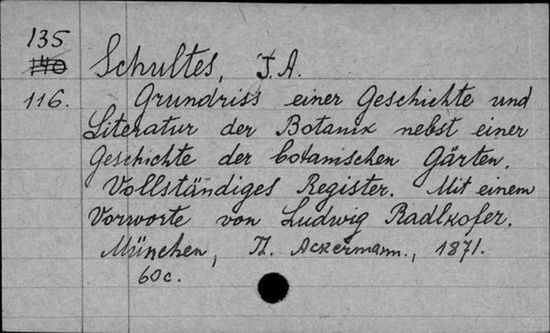 135
140
Schultes, J. A.
116. Grundriss einer Geschichte und
Literatur der Botanik nebst einer
Geschichte der botanischen Gärten.
Vollständiges Register. Mit einem
Vorworte von Ludwig Radlkofer.
München, Th. Ackermann., 1871.
60c.